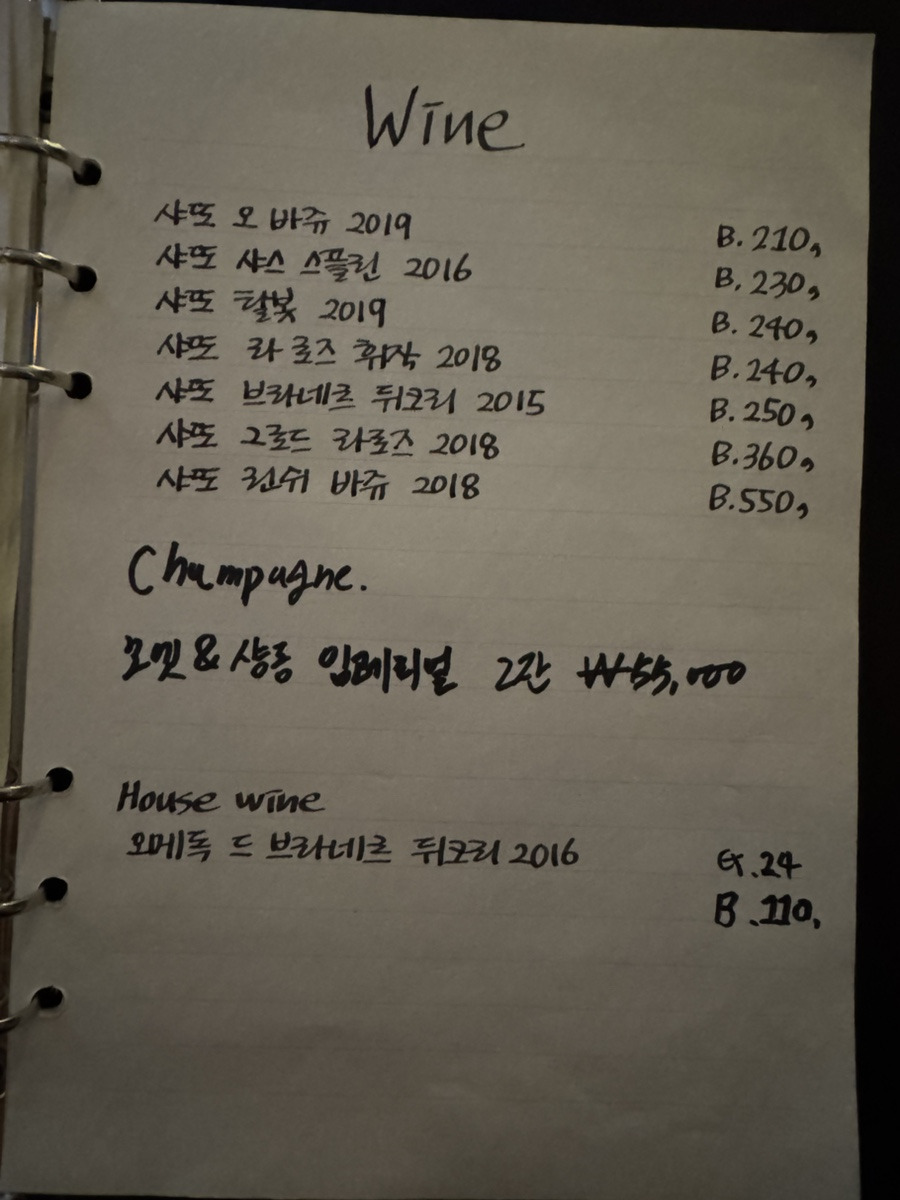 Wine
샤또 오 바쥬 2019 B. 210,
샤또 샤스 스플린 2016 B. 230,
샤또 탈봇 2019 B. 240,
샤또 라 로즈 휘작 2018 B. 240,
샤또 브라네르 뒤크리 2015 B. 250,
샤또 그로드 라로즈 2018 B. 360,
샤또 린쉬 바쥬 2018 B. 550,
Champagne.
모엣 & 샹동 임페리얼 2잔 ₩55,000
House wine
오메독 드 브라네르 뒤크리 2016 G. 24
B. 110,